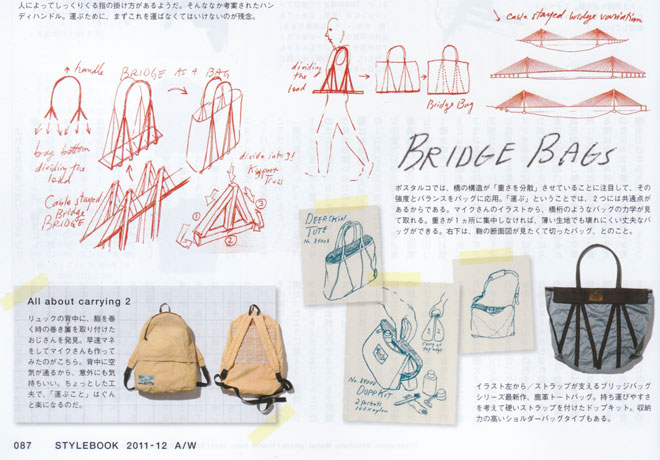 人によってしっくりくる指の掛け方があるようだ。そんななか考案されたハン
ディハンドル。運ぶために、まずこれを運ばなくてはいけないのが残念。
handle
BRIDGE AS A BAG
bag bottom
dividing the
load
Cable stayed
Bridge
BRIDGE
divide into 3!
Support
Truss
①
②
③
dividing
the
load
Bridge Bag
cable stayed bridge variation
BRIDGE BAGS
ポスタルコでは、橋の構造が「重さを分散」させていることに注目して、その
強度とバランスをバッグに応用。「運ぶ」ということでは、2つには共通点が
あるからである。マイクさんのイラストから、橋桁のようなバッグの力学が見
て取れる。重さが1ヵ所に集中しなければ、薄い生地でも壊れにくい丈夫なバ
ッグができる。右下は、鞄の断面図が見たくて切ったバッグ、とのこと。
DEERSKIN
TOTE
All about carrying 2
リュックの背中に、鮨を巻
く時の巻き簾を取り付けた
おじさんを発見。早速マネ
をしてマイクさんも作って
みたのがこちら。背中に空
気が通るから、意外にも気
持ちいい。ちょっとした工
夫で、「運ぶこと」はぐん
と楽になるのだ。
DOPP KIT
イラスト左から／ストラップが支えるブリッジバッグ
シリーズ最新作、鹿革トートバッグ。持ち運びやすさ
を考えて硬いストラップを付けたドップキット。収納
力の高いショルダーバッグタイプもある。
087 STYLEBOOK 2011-12 A/W